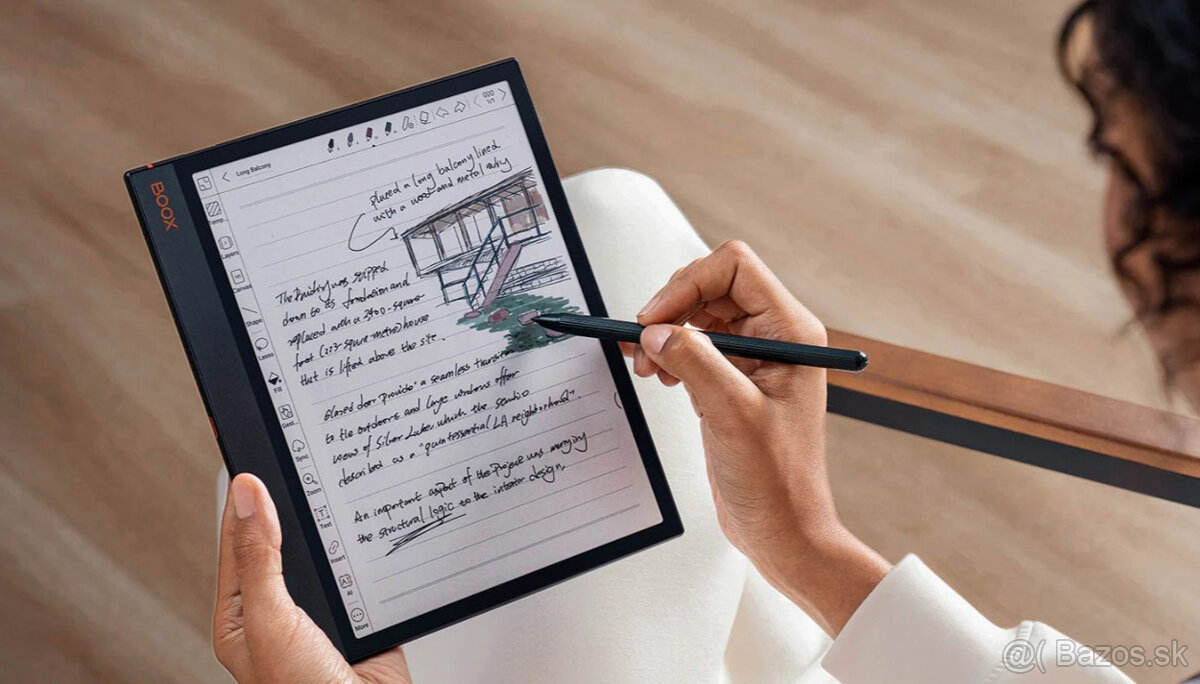 BOOX
Long Balcony
1/1
Temp...
Layers
Canvas
Shape
Lasso
Fill
Gest...
Sync
Zoom
Text
Insert
AI
More
placed a long balcony lined
with a wood and metal
The Building was stripped
down to its foundation and
replaced with a 2400-square-
foot (223-square-metre) house
that is lifted above the site.
Glazed door provide a seamless transition
to the outdoors and large windows offer
views of Silver Lake which the studio
described as a "quintessential LA neighborhood".
An important aspect of the Project was merging
the structural logic to the interior design,
@( Bazos.sk